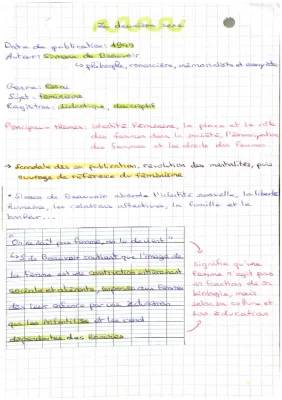 Le deuxième sexe
Date de publication: 1949
Auteur: Simone de Beauvoir
↳ philosophe, romancière, mémorialiste et essayiste
Genre: Essai
Sujet: féminisme
Registres: didactique, descriptif
Principaux thèmes: identité féminine, la place et le rôle
des femmes dans la société, l'émancipation
des femmes et les droits des femmes.
→ Scandale dès sa publication, révolution des mentalités, puis
ouvrage de référence du féminisme
• Simone de Beauvoir aborde l'identité sexuelle, la liberté
humaine, les relations affectives, la famille et le
bonheur...
"On ne naît pas femme, on le devient"
↳ S. de Beauvoir soutient que l'image de
la femme est une construction
sociale et aliénante, imposée aux femmes
dès leur enfance par une éducation
qui les infantilise et les rend
dépendantes des hommes.
Signifie qu'une
femme n'agit pas
en fonction de sa
biologie, mais
selon sa culture et
son éducation